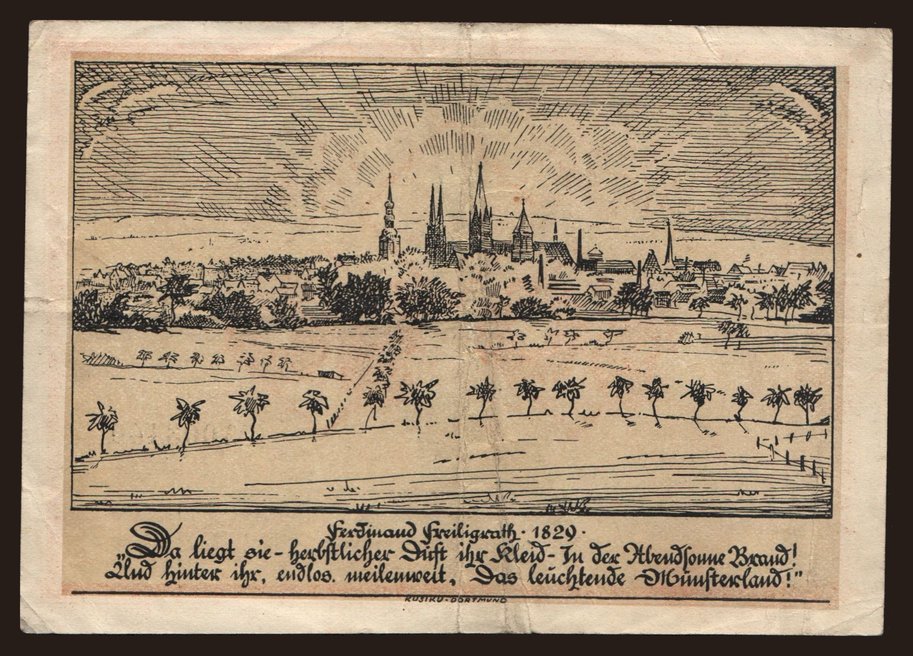 Ferdinand Freiligrath · 1829 ·
„Da liegt sie - herbstlicher Duft ihr Kleid - In der Abendsonne Brand!
Und hinter ihr, endlos, meilenweit, Das leuchtende Münsterland!"
KUSIKU - DORTMUND